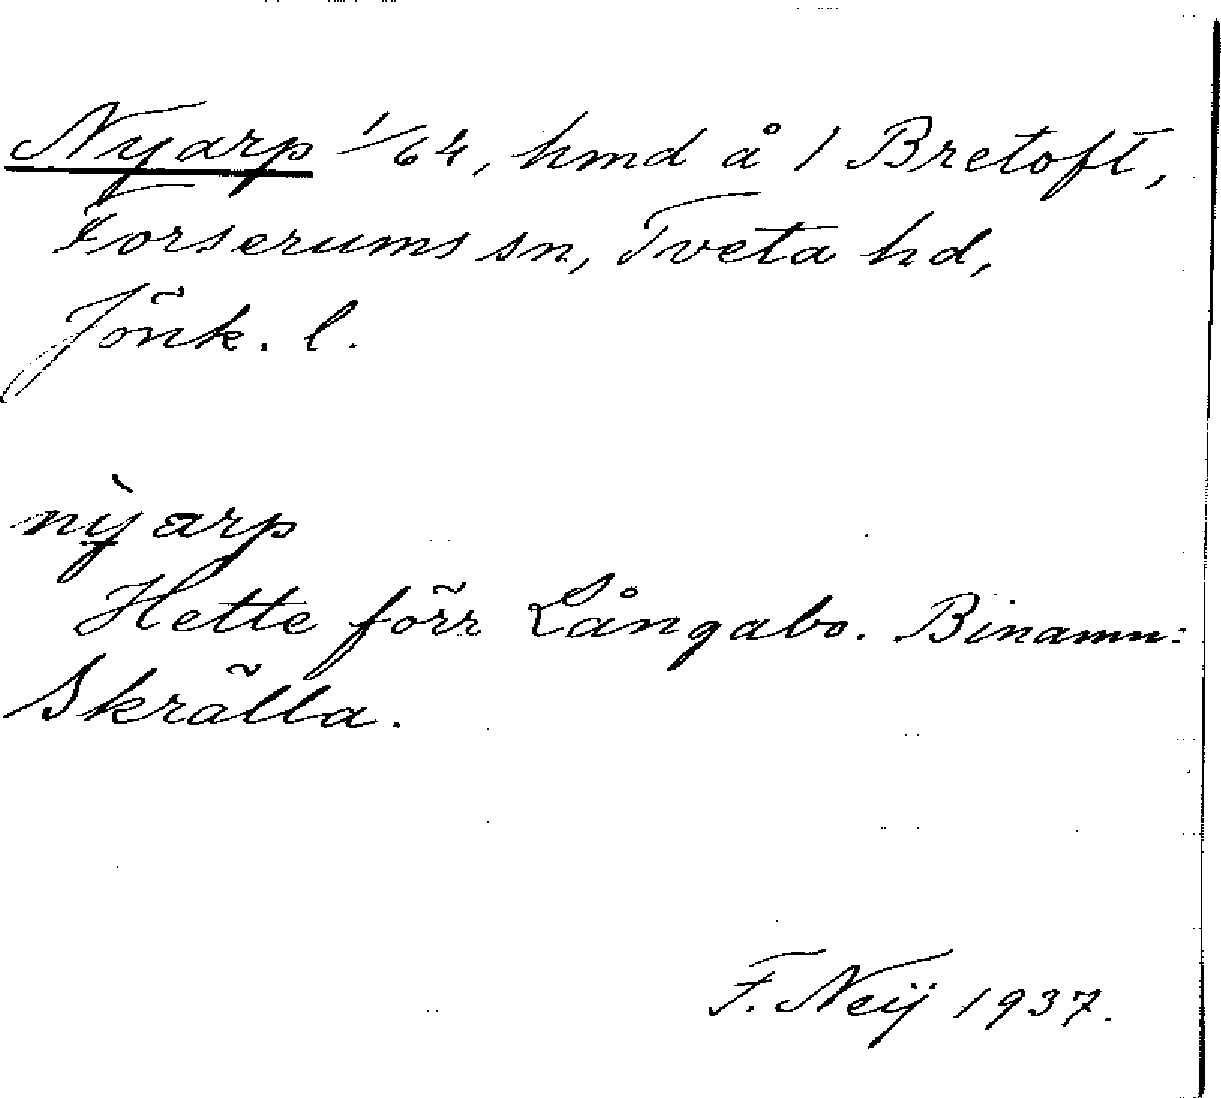 Nyarp 1/64, hmd å 1 Bretoft,
Forserums sn, Tveta hd,
Jönk. l.
nỳarp
Hette förr Långabo. Binamn:
Skrälla.
F. Neij 1937.